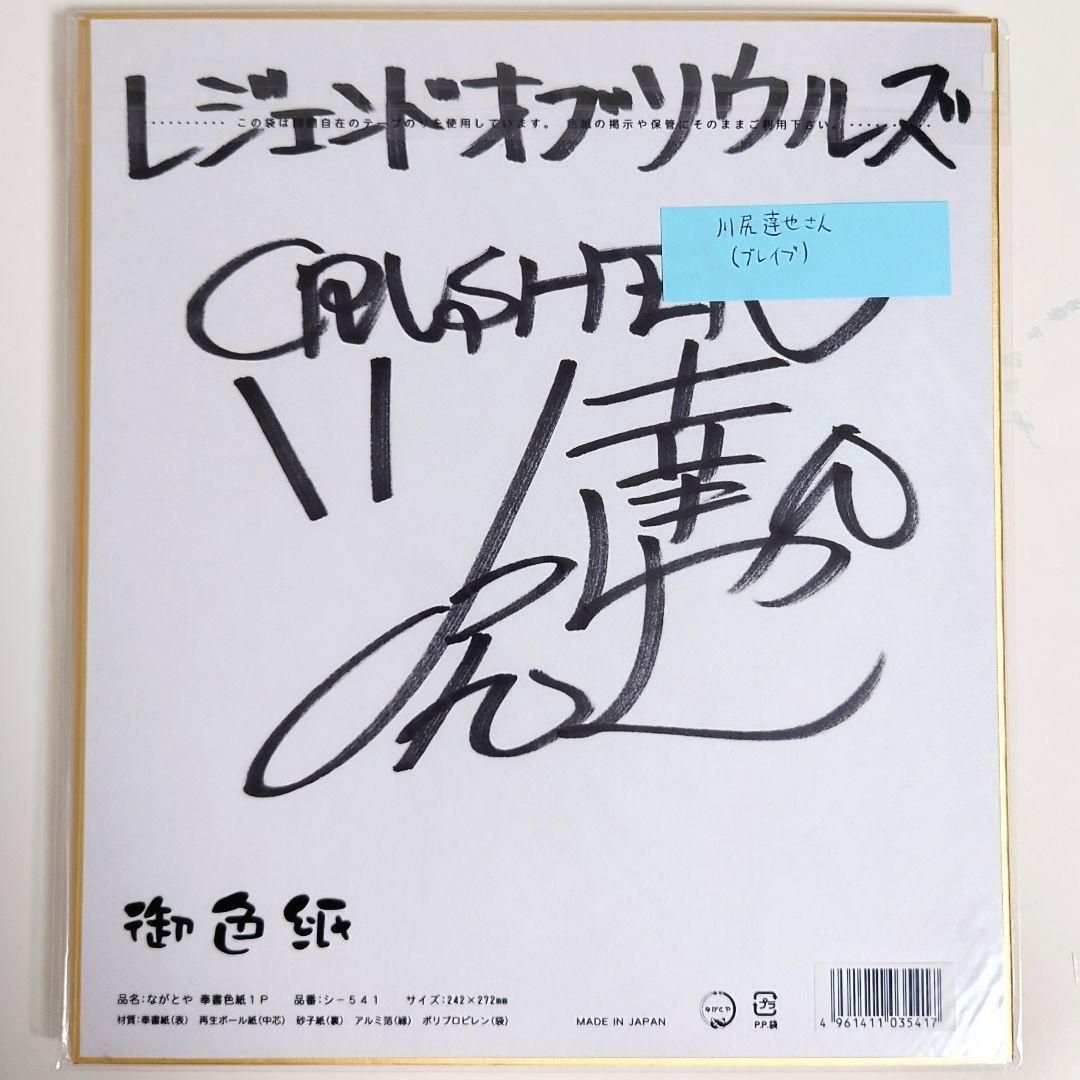 レジェンドオブソウルズ
この袋は開閉自在のテープのりを使用しています。 色紙の掲示や保管にそのままご利用下さい。
川尻達也さん
(ブレイブ)
CRUSHER
川尻達也
御色紙
品名:ながとや 奉書色紙1P 品番:シ-541 サイズ:242×272mm
材質:奉書紙(表) 再生ボール紙(中芯) 砂子紙(裏) アルミ箔(縁) ポリプロピレン(袋)
MADE IN JAPAN
ながとや
プラ
P.P.袋
4 961411 035417